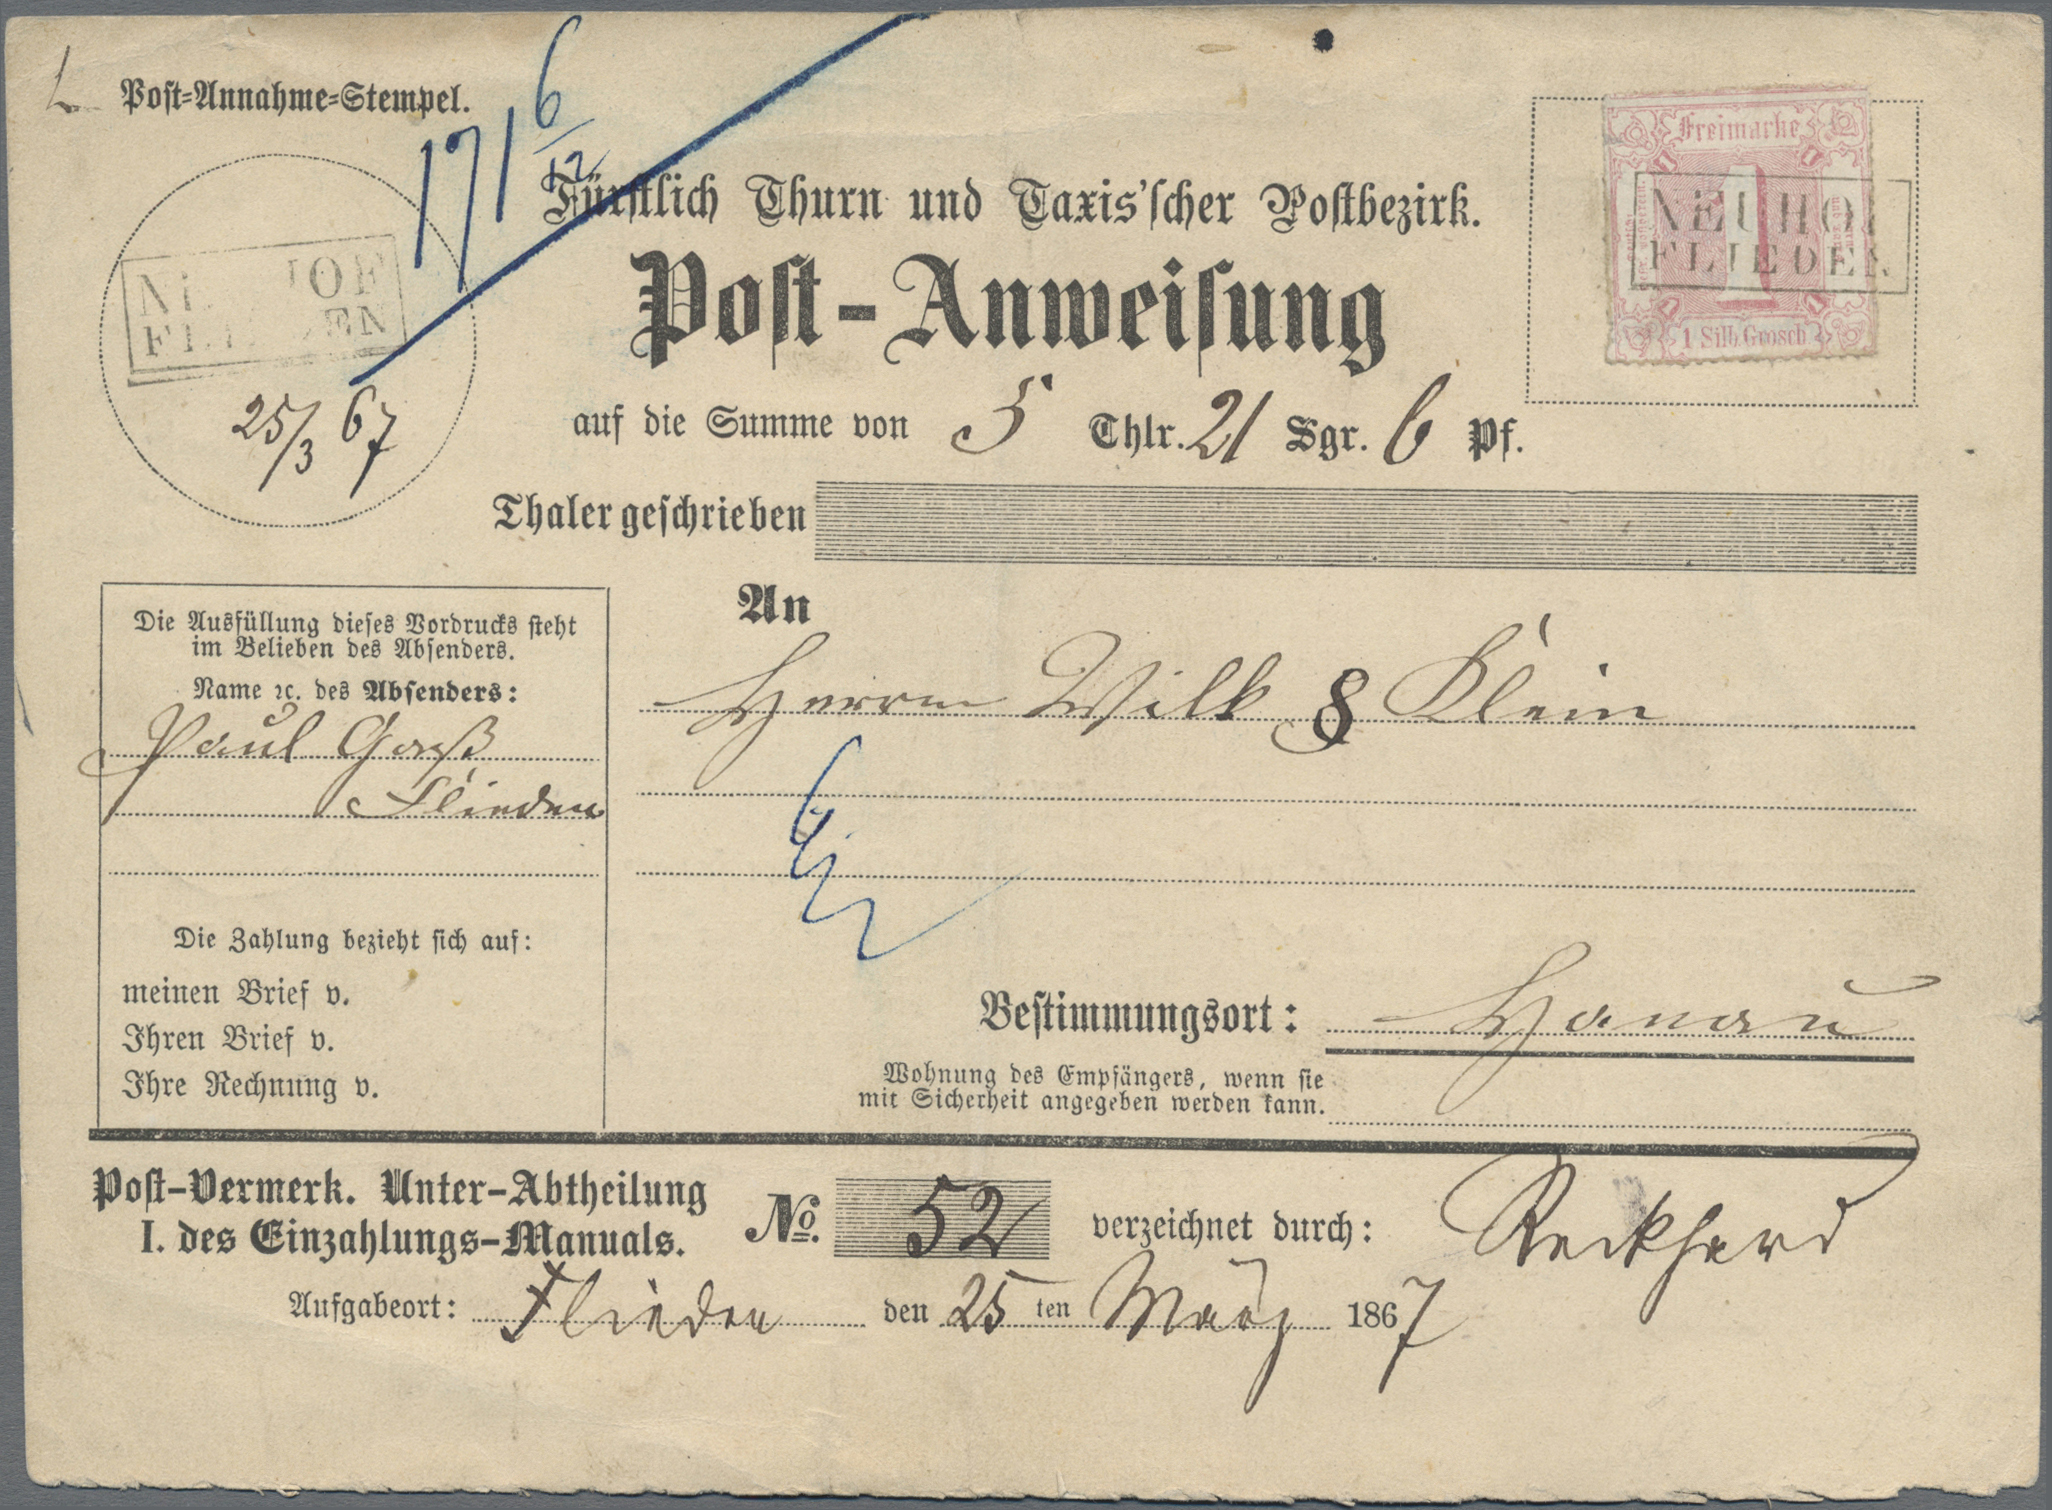 Post-Annahme-Stempel.
1716/12
Fürstlich Thurn und Taxis'scher Postbezirk.
Post-Anweisung
Freimarke
1
1 Silb. Grosch
NEUHOF
FLIEDEN
NEUHOF
FLIEDEN
25/3 67
auf die Summe von 5 Thlr. 21 Sgr. 6 Pf.
Thaler geschrieben
An
Herren Wilk & Klein
Die Ausfüllung dieses Vordrucks steht
im Belieben des Absenders.
Name ꝛc. des Absenders:
Paul
Flieden
Die Zahlung bezieht sich auf:
meinen Brief v.
Ihren Brief v.
Ihre Rechnung v.
Bestimmungsort: Hanau
Wohnung des Empfängers, wenn sie
mit Sicherheit angegeben werden kann.
Post-Vermerk. Unter-Abtheilung
I. des Einzahlungs-Manuals.
No. 52 verzeichnet durch: Reckhard
Aufgabeort: Flieden den 25 ten März 1867